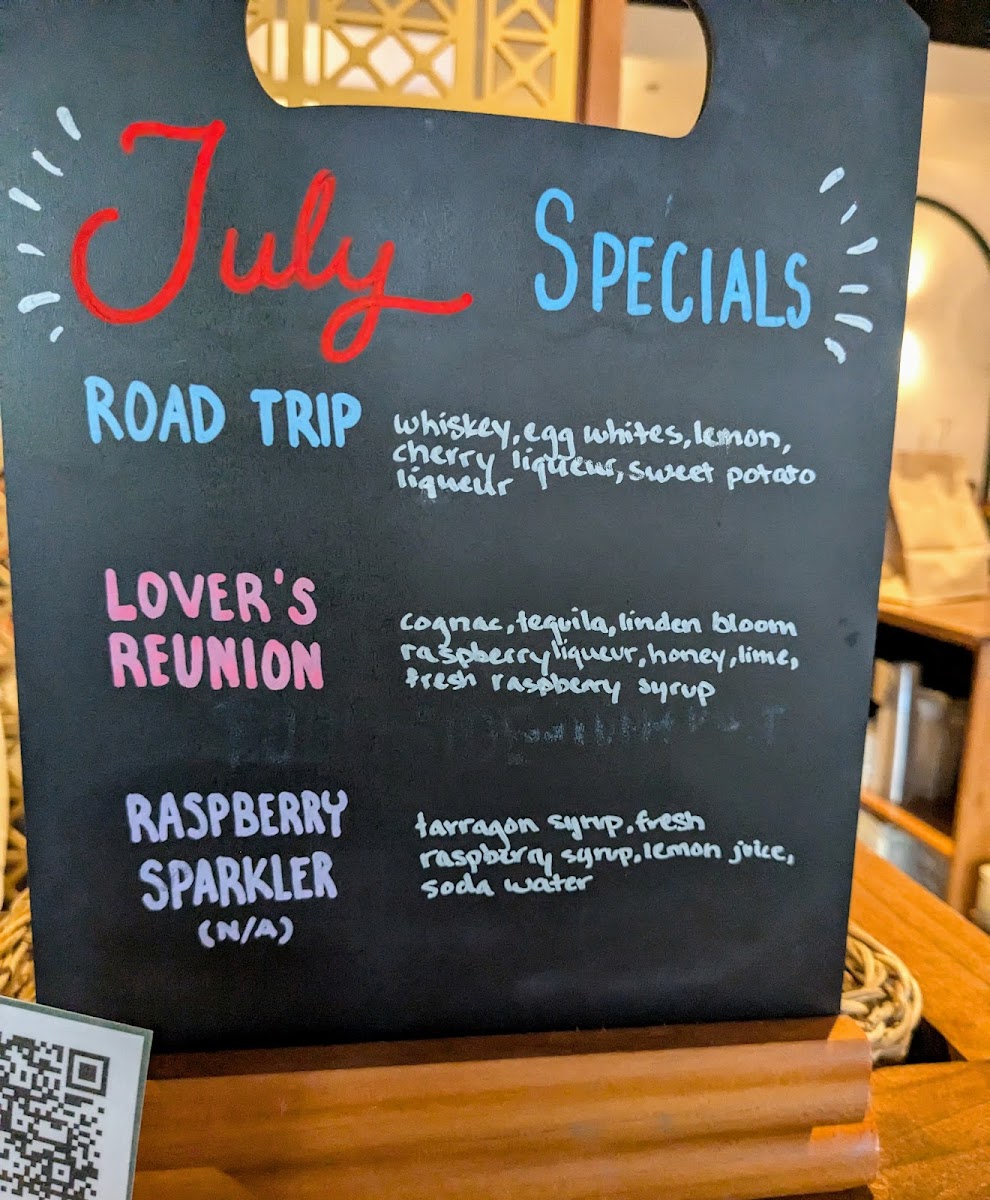 July SPECIALS
ROAD TRIP
whiskey, egg whites, lemon,
cherry liqueur, sweet potato
liqueur
LOVER'S
REUNION
cognac, tequila, linden bloom
raspberry liqueur, honey, lime,
fresh raspberry syrup
RASPBERRY
SPARKLER
(N/A)
tarragon syrup, fresh
raspberry syrup, lemon juice,
soda water